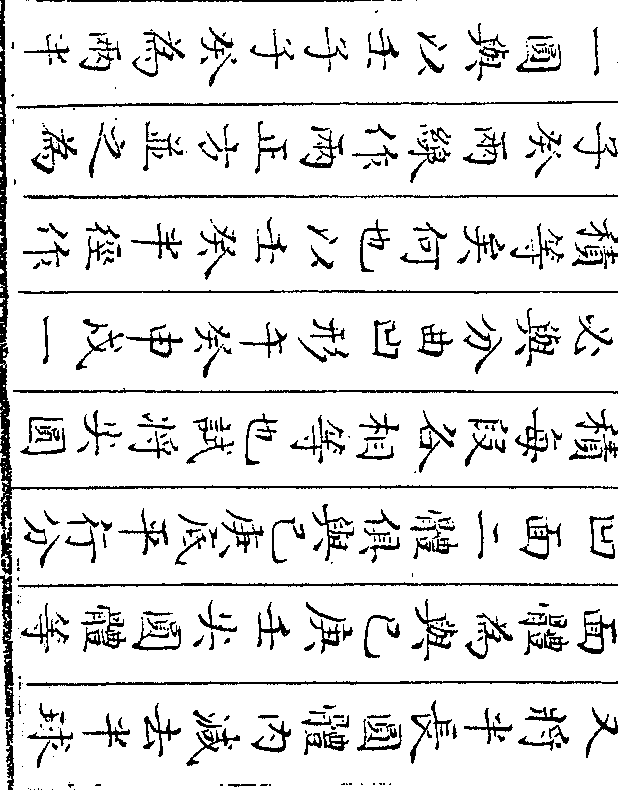 又將半長圓體內減去半球
面體為與己庚壬尖圓體等
凹面二體俱與己庚底平行分
積每段各相等也試將尖圓
必與分曲凹形午癸申戌一
積等矣何也以壬癸半徑作
子癸兩線作兩正方並之為
一圓與以壬子子癸為兩半